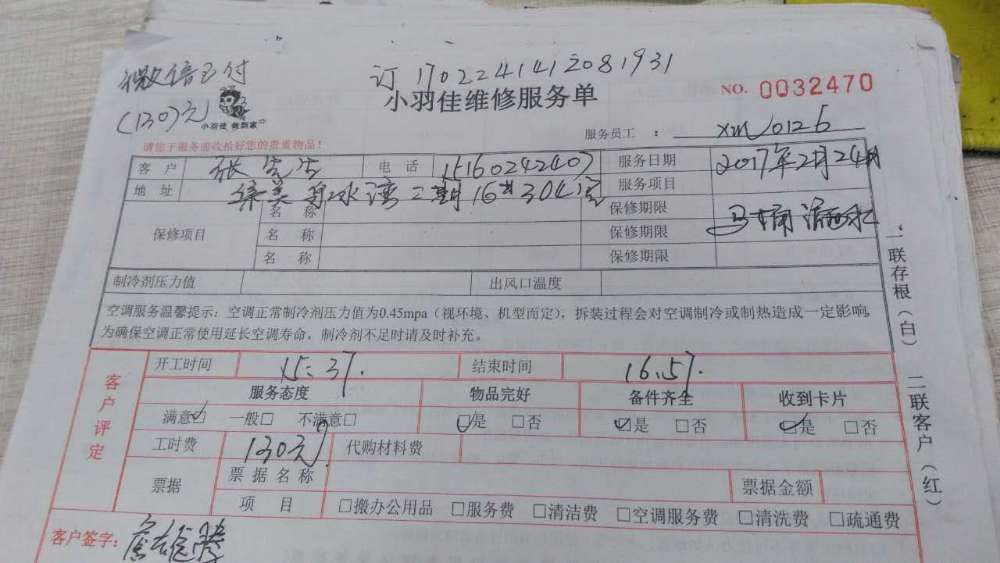 微信已付
(130)元
订1702241412081931
小羽佳 做到家
小羽佳维修服务单
NO. 0032470
请您于服务前收拾好您的贵重物品!
服务员工 : xm0126
客户 张先生 电话 15160242407 服务日期 2017年2月24日
地址 二期16 304室 服务项目 马桶
保修项目 名称 保修期限
名称 保修期限
名称 保修期限
制冷剂压力值 出风口温度
空调服务温馨提示:空调正常制冷剂压力值为0.45mpa(视环境、机型而定),拆装过程会对空调制冷或制热造成一定影响,
为确保空调正常使用延长空调寿命,制冷剂不足时请及时补充。
客户评定
开工时间 15:37. 结束时间 16:57.
服务态度 物品完好 备件齐全 收到卡片
满意☑ 一般□ 不满意□ ☑是 □否 ☑是 □否 ☑是 □否
工时费 130元 代购材料费
票据 票据名称 票据金额
项目 □搬办公用品 □服务费 □清洁费 □空调服务费 □清洗费 □疏通费
客户签字:
一联存根(白) 二联客户(红)